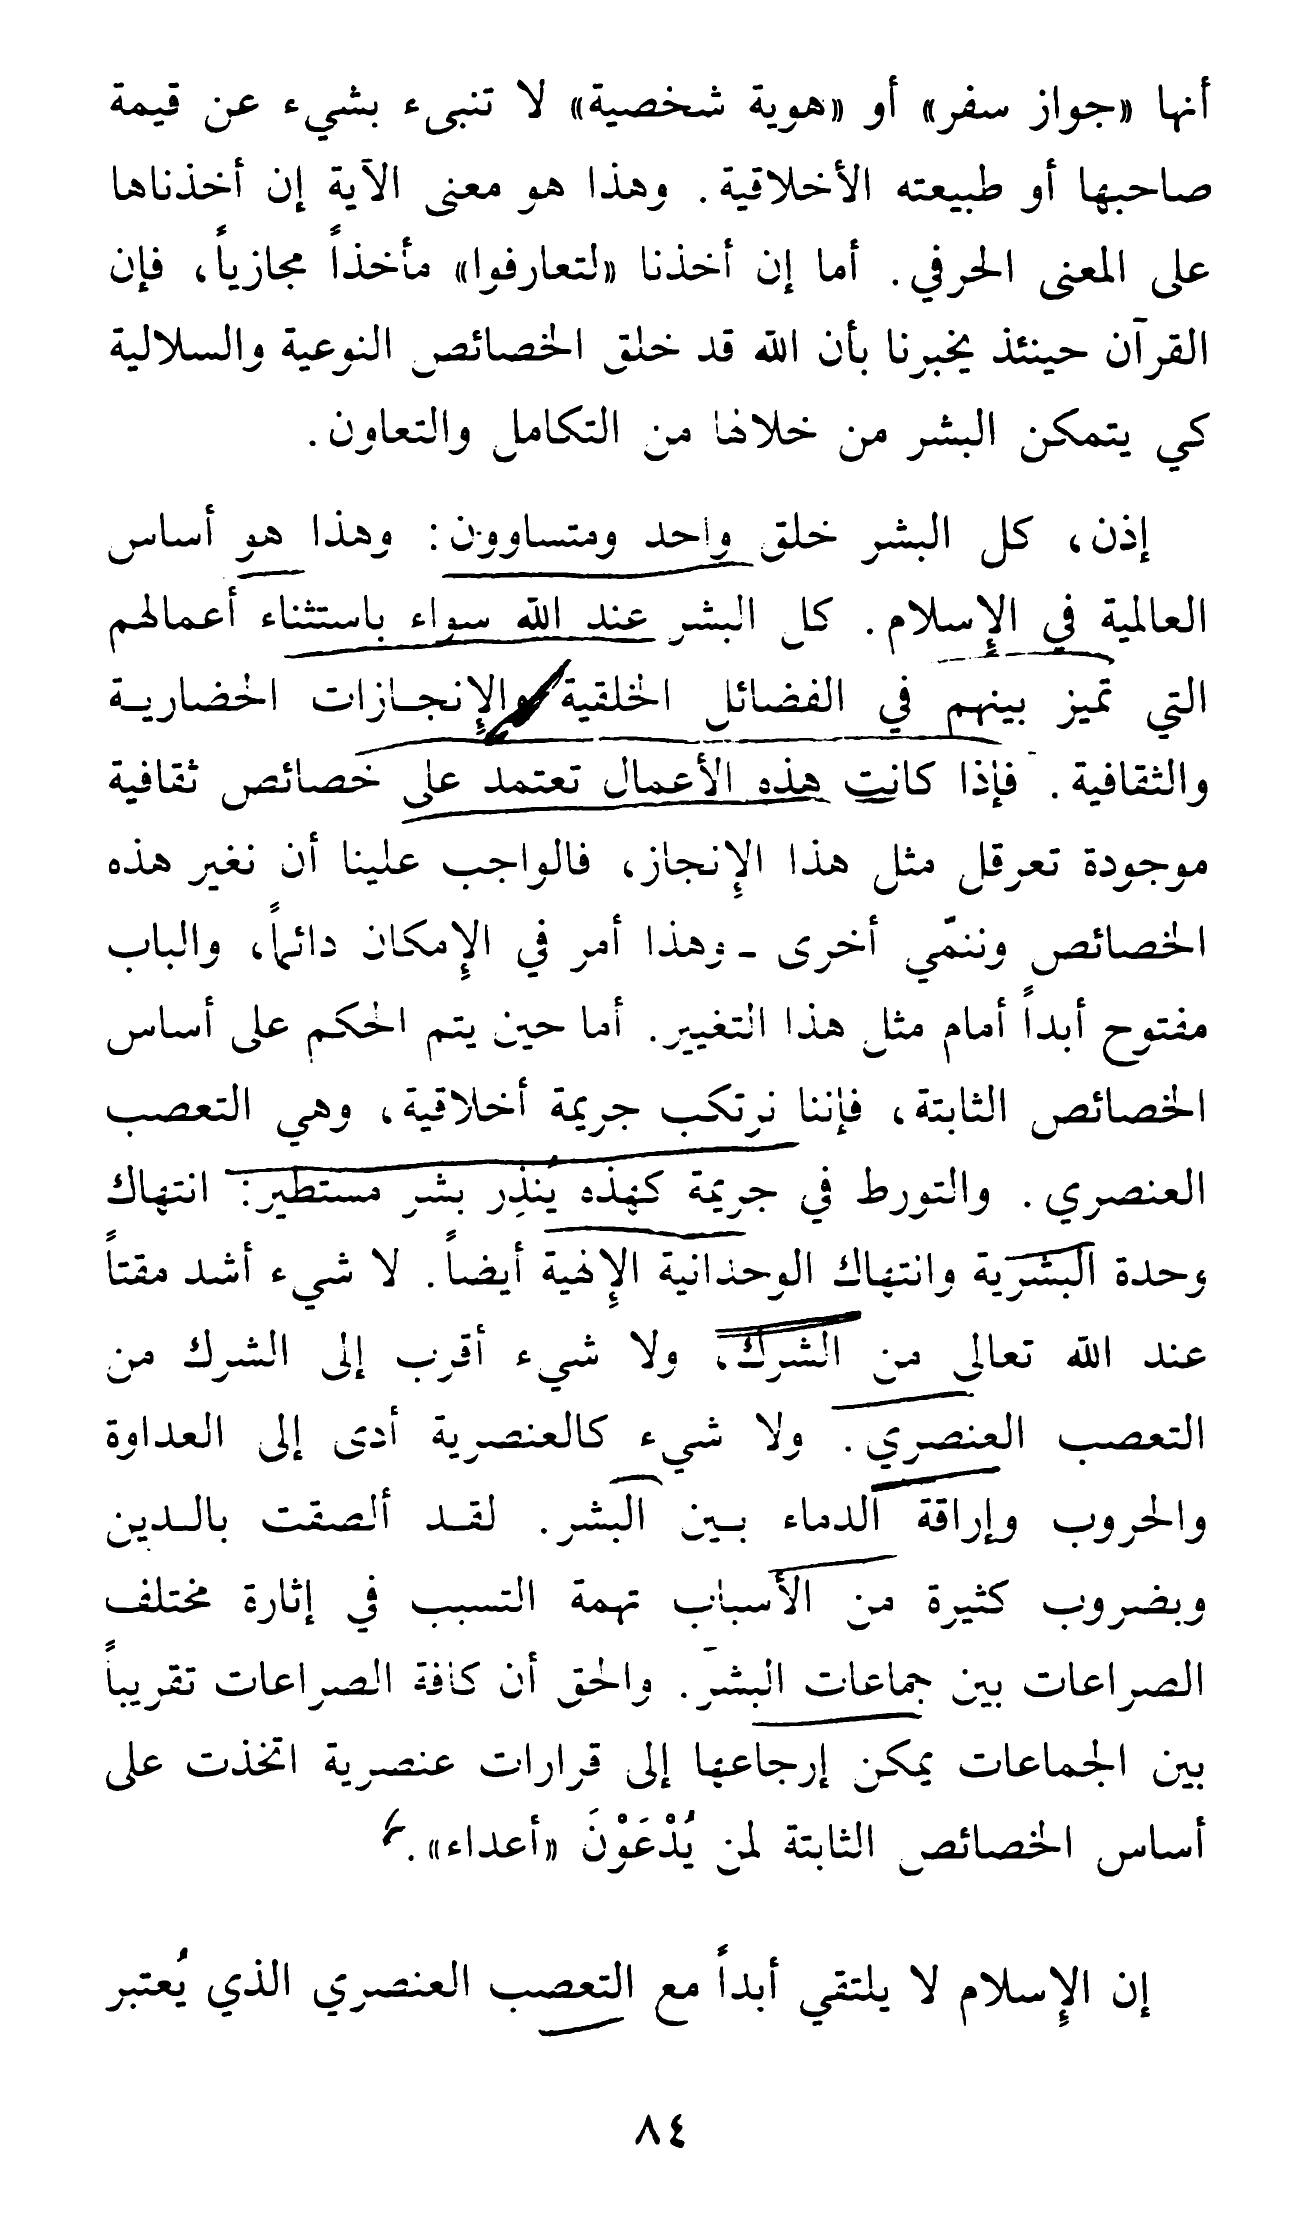 أنها «جواز سفر» أو «هوية شخصية» لا تنبىء بشيء عن قيمة
صاحبها أو طبيعته الأخلاقية. وهذا هو معنى الآية إن أخذناها
على المعنى الحرفي. أما إن أخذنا «لتعارفوا» مأخذاً مجازياً، فإن
القرآن حينئذ يخبرنا بأن الله قد خلق الخصائص النوعية والسلالية
كي يتمكن البشر من خلالها من التكامل والتعاون.
إذن، كل البشر خلق واحد ومتساوون: وهذا هو أساس
العالمية في الإسلام. كل البشر عند الله سواء باستثناء أعمالهم
التي تميز بينهم في الفضائل الخلقية والإنجازات الحضارية
والثقافية. فإذا كانت هذه الأعمال تعتمد على خصائص ثقافية
موجودة تعرقل مثل هذا الإنجاز، فالواجب علينا أن نغير هذه
الخصائص وننمّي أخرى - وهذا أمر في الإمكان دائماً، والباب
مفتوح أبداً أمام مثل هذا التغيير. أما حين يتم الحكم على أساس
الخصائص الثابتة، فإننا نرتكب جريمة أخلاقية، وهي التعصب
العنصري. والتورط في جريمة كهذه يُنذِر بشر مستطير: انتهاك
وحدة البشرية وانتهاك الوحدانية الإلهية أيضاً. لا شيء أشد مقتاً
عند الله تعالى من الشرك، ولا شيء أقرب إلى الشرك من
التعصب العنصري. ولا شيء كالعنصرية أدى إلى العداوة
والحروب وإراقة الدماء بين البشر. لقد ألصقت بالدين
وبضروب كثيرة من الأسباب تهمة التسبب في إثارة مختلف
الصراعات بين جماعات البشر. والحق أن كافة الصراعات تقريباً
بين الجماعات يمكن إرجاعها إلى قرارات عنصرية اتخذت على
أساس الخصائص الثابتة لمن يُدْعَوْنَ «أعداء».
إن الإسلام لا يلتقي أبداً مع التعصب العنصري الذي يُعتبر
٨٤